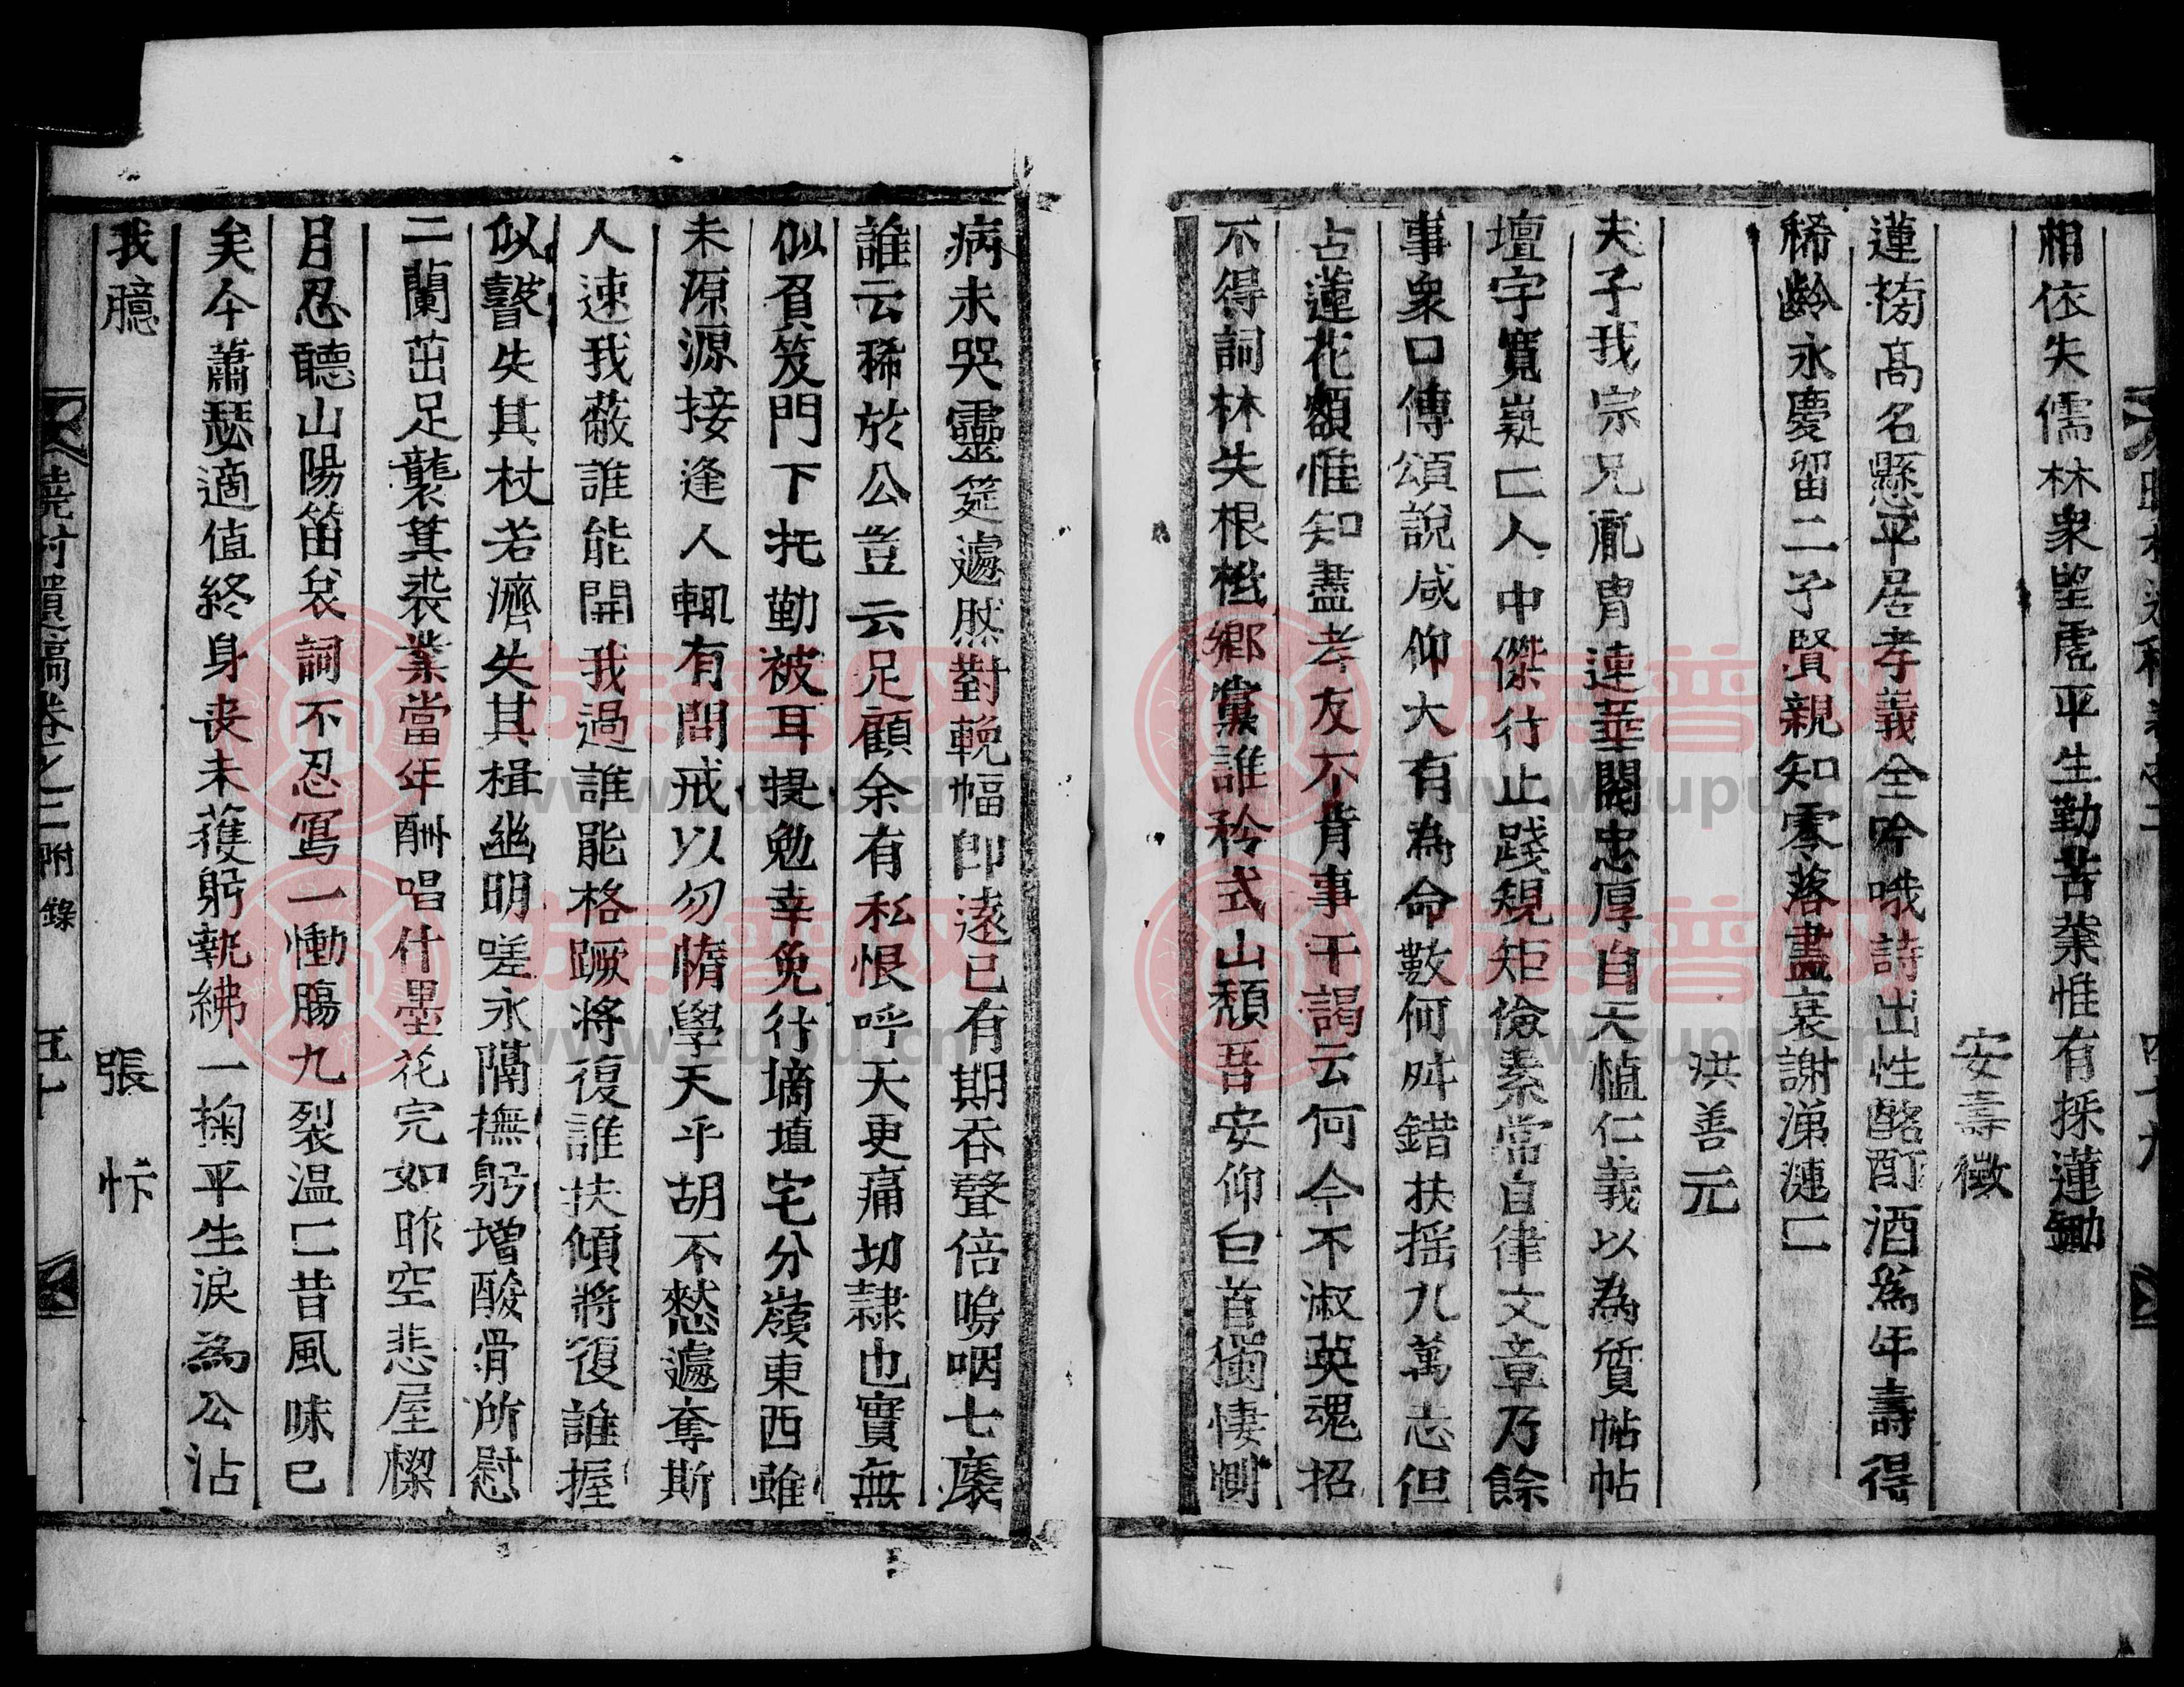 相依失儒林衆望虛平生勤苦業惟有採蓮鋤
安壽徵
蓮榜高名懸平居孝義全吟哦詩出性酩酊酒爲年壽得
稀齡永慶留二子賢親知零落盡衰謝涕漣匸
洪善元
夫子我宗兄胤胄連華閥忠厚自天植仁義以為質帖帖
壇宇寬嶷匸人中傑行止踐規矩儉素常自律文章乃餘
事衆口傳頌說咸仰大有為命數何舛錯扶搖九萬志但
占蓮花額惟知盡孝友不肯事干謁云何今不淑英魂招
不得詞林失根柢鄉黨誰矜式山頹吾安仰白首獨悽惻
病未哭靈筵遽然對輓幅即遠已有期吞聲倍嗚咽七㾗
誰云稀於公豈云足顧余有私恨呼天更痛切隷也實無
似負笈門下托勤被耳提勉幸免行擿埴宅分嶺東西雖
未源源接逢人輒有問戒以勿惰學天乎胡不憖遽奪斯
人速我蔽誰能開我過誰能格蹶將復誰扶傾將復誰握
似瞽失其杖若濟失其楫幽明嗟永隔撫躬增酸骨所慰
二蘭茁足襲箕裘業當年酬唱什墨花完如昨空悲屋樑
月忍聽山陽笛哀詞不忍寫一慟膓九裂温匸昔風味已
矣今蕭瑟適值終身喪未獲躬執紼一掬平生淚為公沾
我臆
張忭
曉村遺稿卷之二 附錄 五十